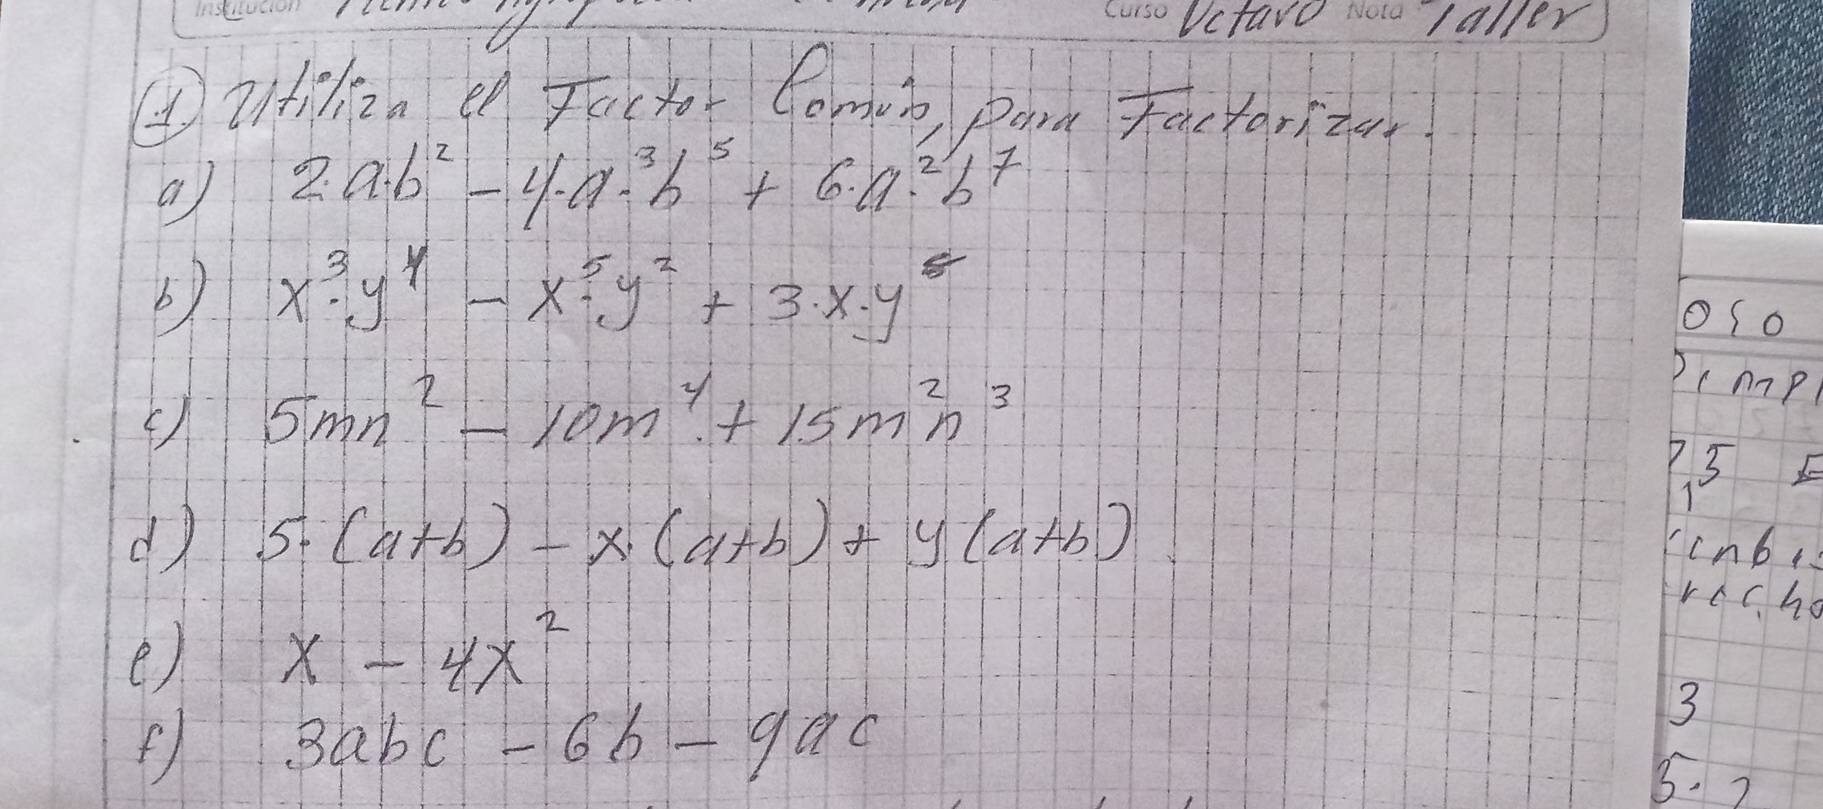 Institución Curso Octavo Nota Taller
① Utiliza el Factor Común, para Factorizar.
a) 2.a.b² - 4.a.³b⁵ + 6.a.²b⁷
b) x³.y⁴ - x⁵.y² + 3.x.y⁵
c) 5mn² - 10m⁴. + 15m²n³
d) 5.(a+b) - x.(a+b) + y(a+b).
e) x - 4x²
f) 3abc - 6b - 9ac
oso
3